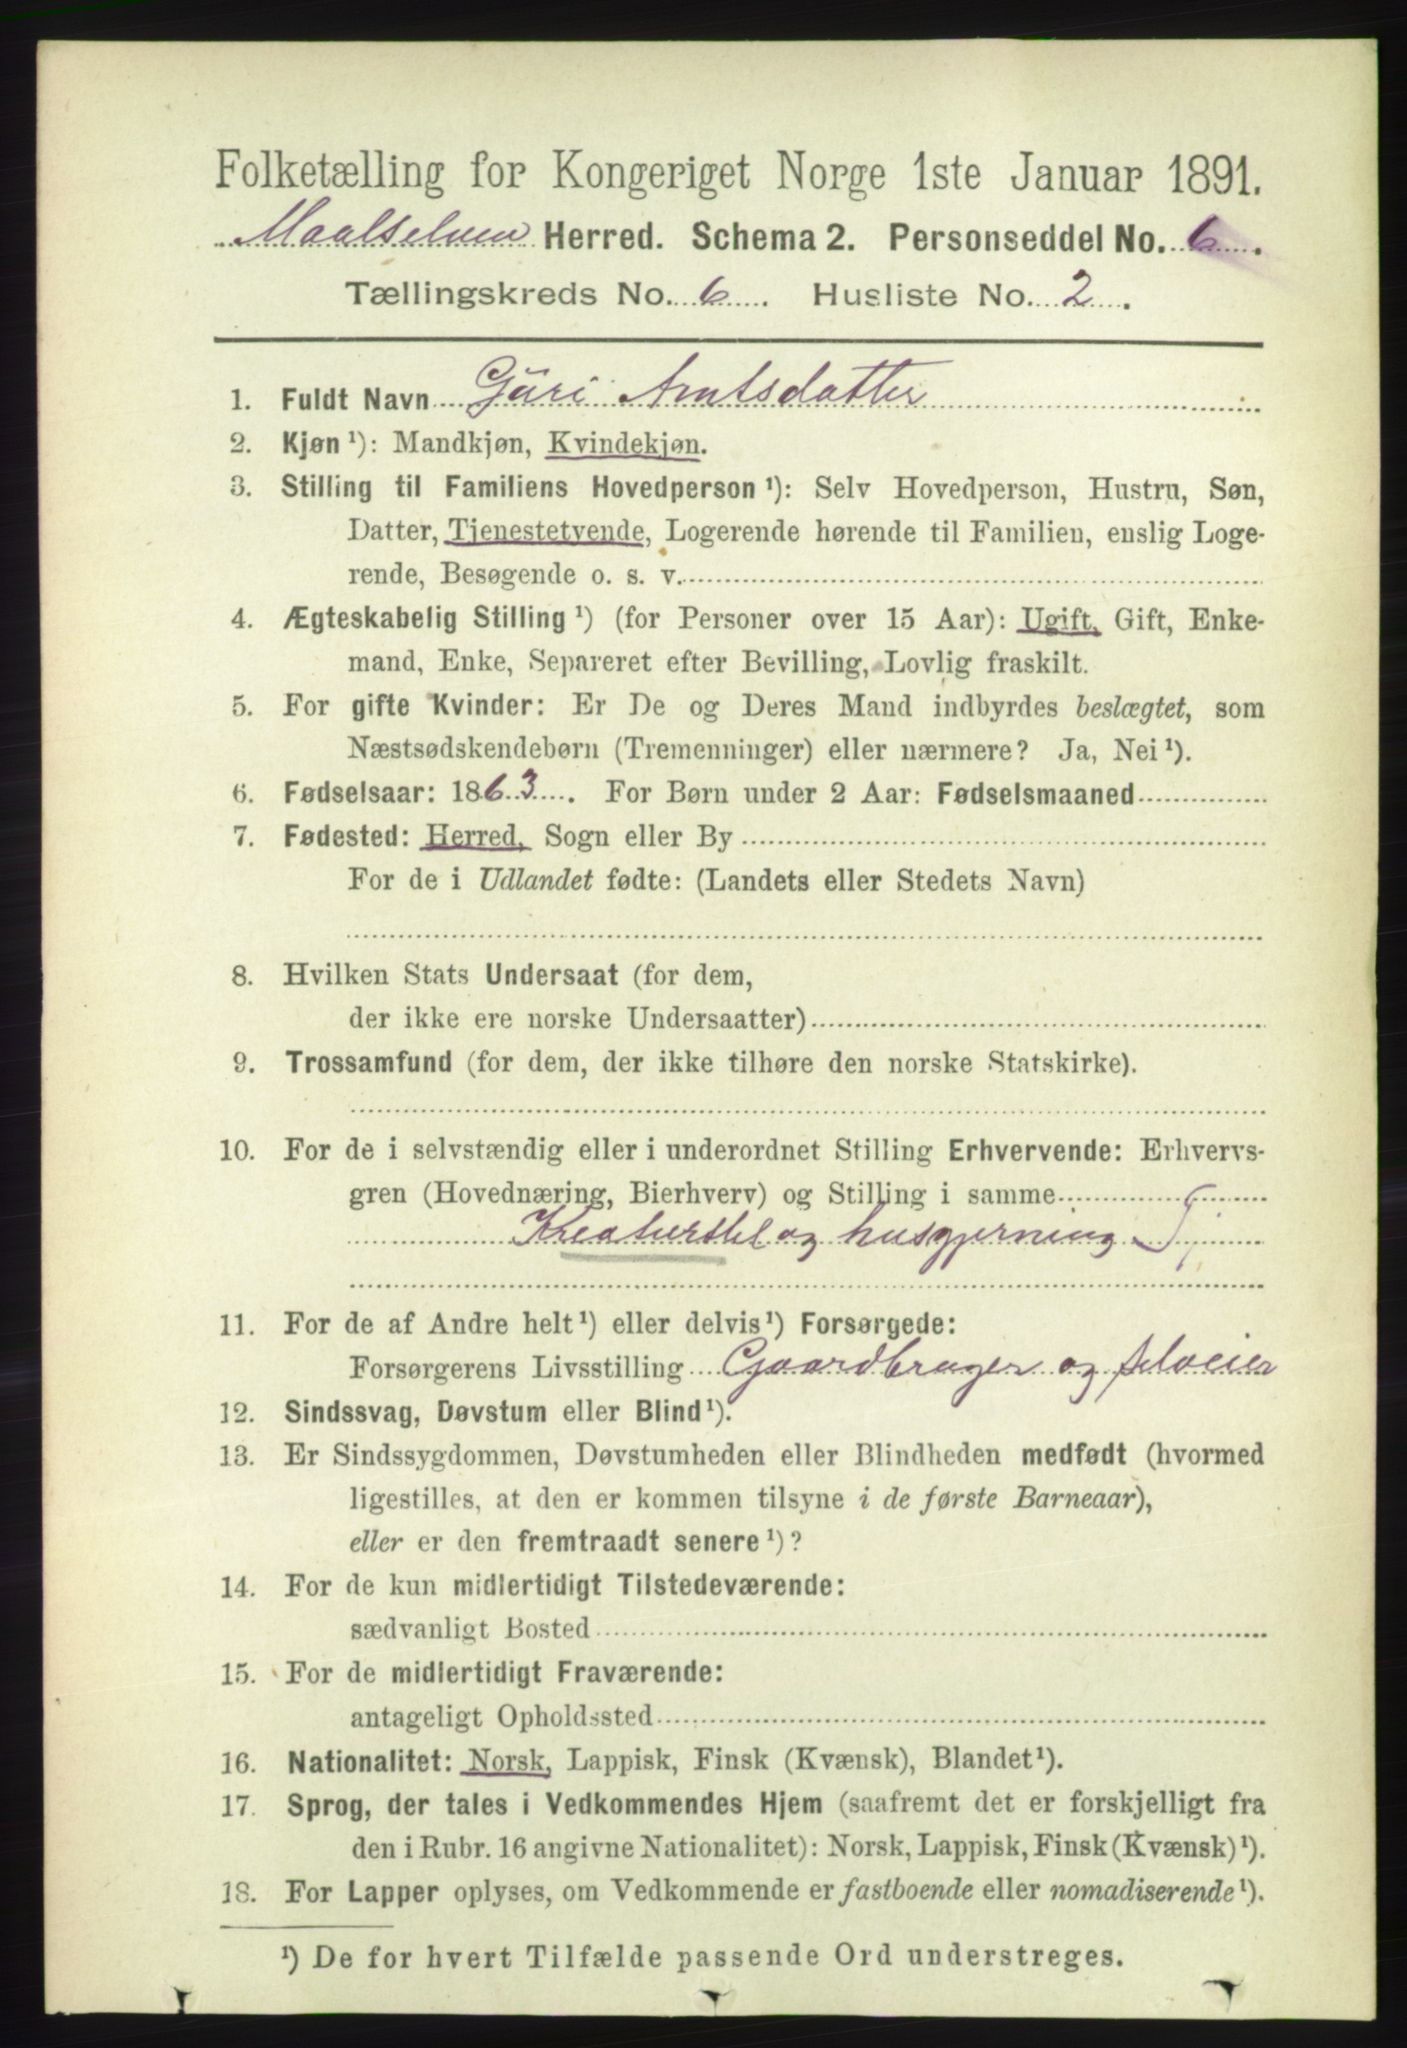 Folketælling for Kongeriget Norge 1ste Januar 1891.
Maalselven Herred. Schema 2. Personseddel No. 6.
Tællingskreds No. 6. Husliste No. 2.
1. Fuldt Navn Guri Arntsdatter
2. Kjøn ¹): Mandkjøn, Kvindekjøn.
3. Stilling til Familiens Hovedperson ¹): Selv Hovedperson, Hustru, Søn,
Datter, Tjenestetyende, Logerende hørende til Familien, enslig Loge-
rende, Besøgende o. s. v.
4. Ægteskabelig Stilling ¹) (for Personer over 15 Aar): Ugift, Gift, Enke-
mand, Enke, Separeret efter Bevilling, Lovlig fraskilt.
5. For gifte Kvinder: Er De og Deres Mand indbyrdes beslægtet, som
Næstsødskendebørn (Tremenninger) eller nærmere? Ja, Nei ¹).
6. Fødselsaar: 1863. For Børn under 2 Aar: Fødselsmaaned
7. Fødested: Herred, Sogn eller By
For de i Udlandet fødte: (Landets eller Stedets Navn)
8. Hvilken Stats Undersaat (for dem,
der ikke ere norske Undersaatter)
9. Trossamfund (for dem, der ikke tilhøre den norske Statskirke).
10. For de i selvstændig eller i underordnet Stilling Erhvervende: Erhvervs-
gren (Hovednæring, Bierhverv) og Stilling i samme
Kreaturstel og husgjerning Tj
11. For de af Andre helt ¹) eller delvis ¹) Forsørgede:
Forsørgerens Livsstilling Gaardbruger og selveier
12. Sindssvag, Døvstum eller Blind ¹).
13. Er Sindssygdommen, Døvstumheden eller Blindheden medfødt (hvormed
ligestilles, at den er kommen tilsyne i de første Barneaar),
eller er den fremtraadt senere ¹)?
14. For de kun midlertidigt Tilstedeværende:
sædvanligt Bosted
15. For de midlertidigt Fraværende:
antageligt Opholdssted
16. Nationalitet: Norsk, Lappisk, Finsk (Kvænsk), Blandet ¹).
17. Sprog, der tales i Vedkommendes Hjem (saafremt det er forskjelligt fra
den i Rubr. 16 angivne Nationalitet): Norsk, Lappisk, Finsk (Kvænsk) ¹).
18. For Lapper oplyses, om Vedkommende er fastboende eller nomadiserende ¹).
¹) De for hvert Tilfælde passende Ord understreges.